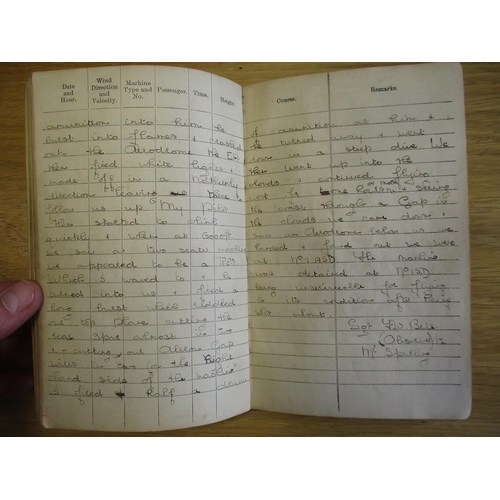 Date and Hour.
Wind Direction and Velocity.
Machine Type and No.
Passenger.
Time.
Height.
Course.
Remarks.
amunition into him he
burst into flames & crashed
onto the Aerodrome the
then fired white lights &
made off in a Northerly
direction leaving
follow us up My Pilot
then started to climb
quickly & when at 6000ft
we saw a two seater machine
we appeared to be a
which I waved to & he
turned into us & fired a
long burst which riddled
our top plane cutting the
rear spar almost in
& cutting out Aileron
wires in two on the Right
hand side of the machine
I fired Half a drum
of amunition at him &
he turned away & went
down in a steep dive We
then went up into the
clouds & continued flying
or more
at he & seeing
the coast through a Gap in
the clouds we came down &
saw an Aerodrome below us we
landed & found out we were
at No 1 ASD the machine
was detained at No 1 SD
being unserviceable for flying
in it's condition after being
shot about.
Sgt
(Observer)
Mr